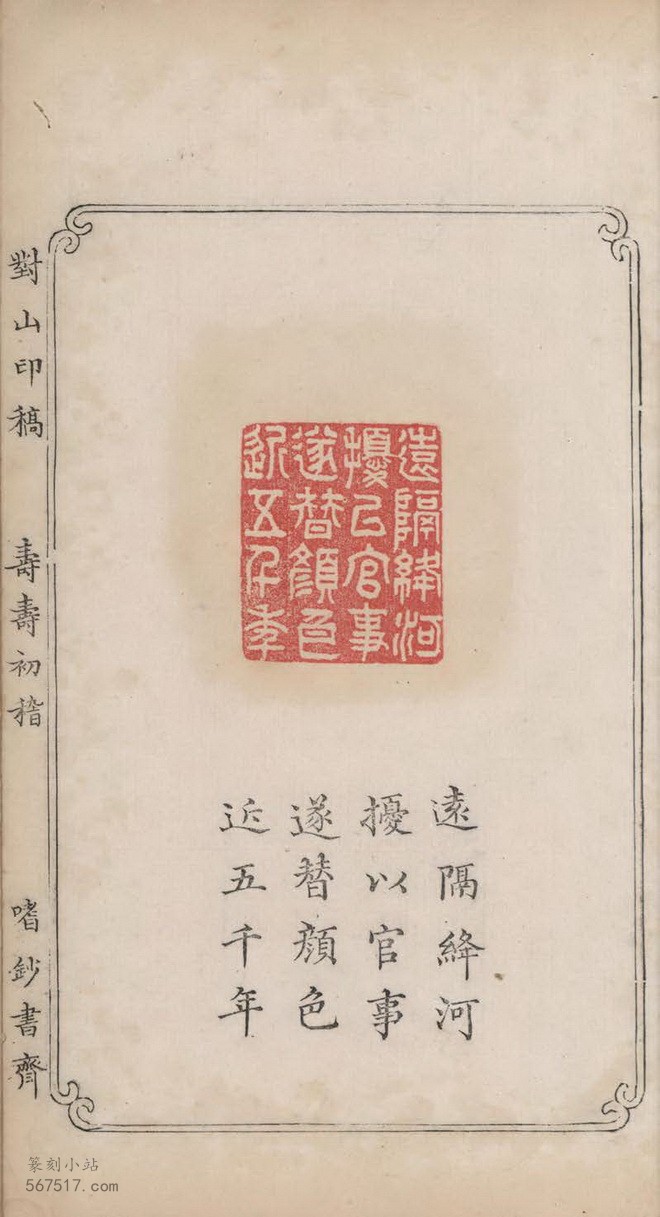 遠隔絳河
擾㠯官事
遂替顏色
近五千年
遠隔絳河
擾以官事
遂替顏色
近五千年
對山印稿 壽壽初稽 嗜鈔書齋
篆刻小站
567517.com